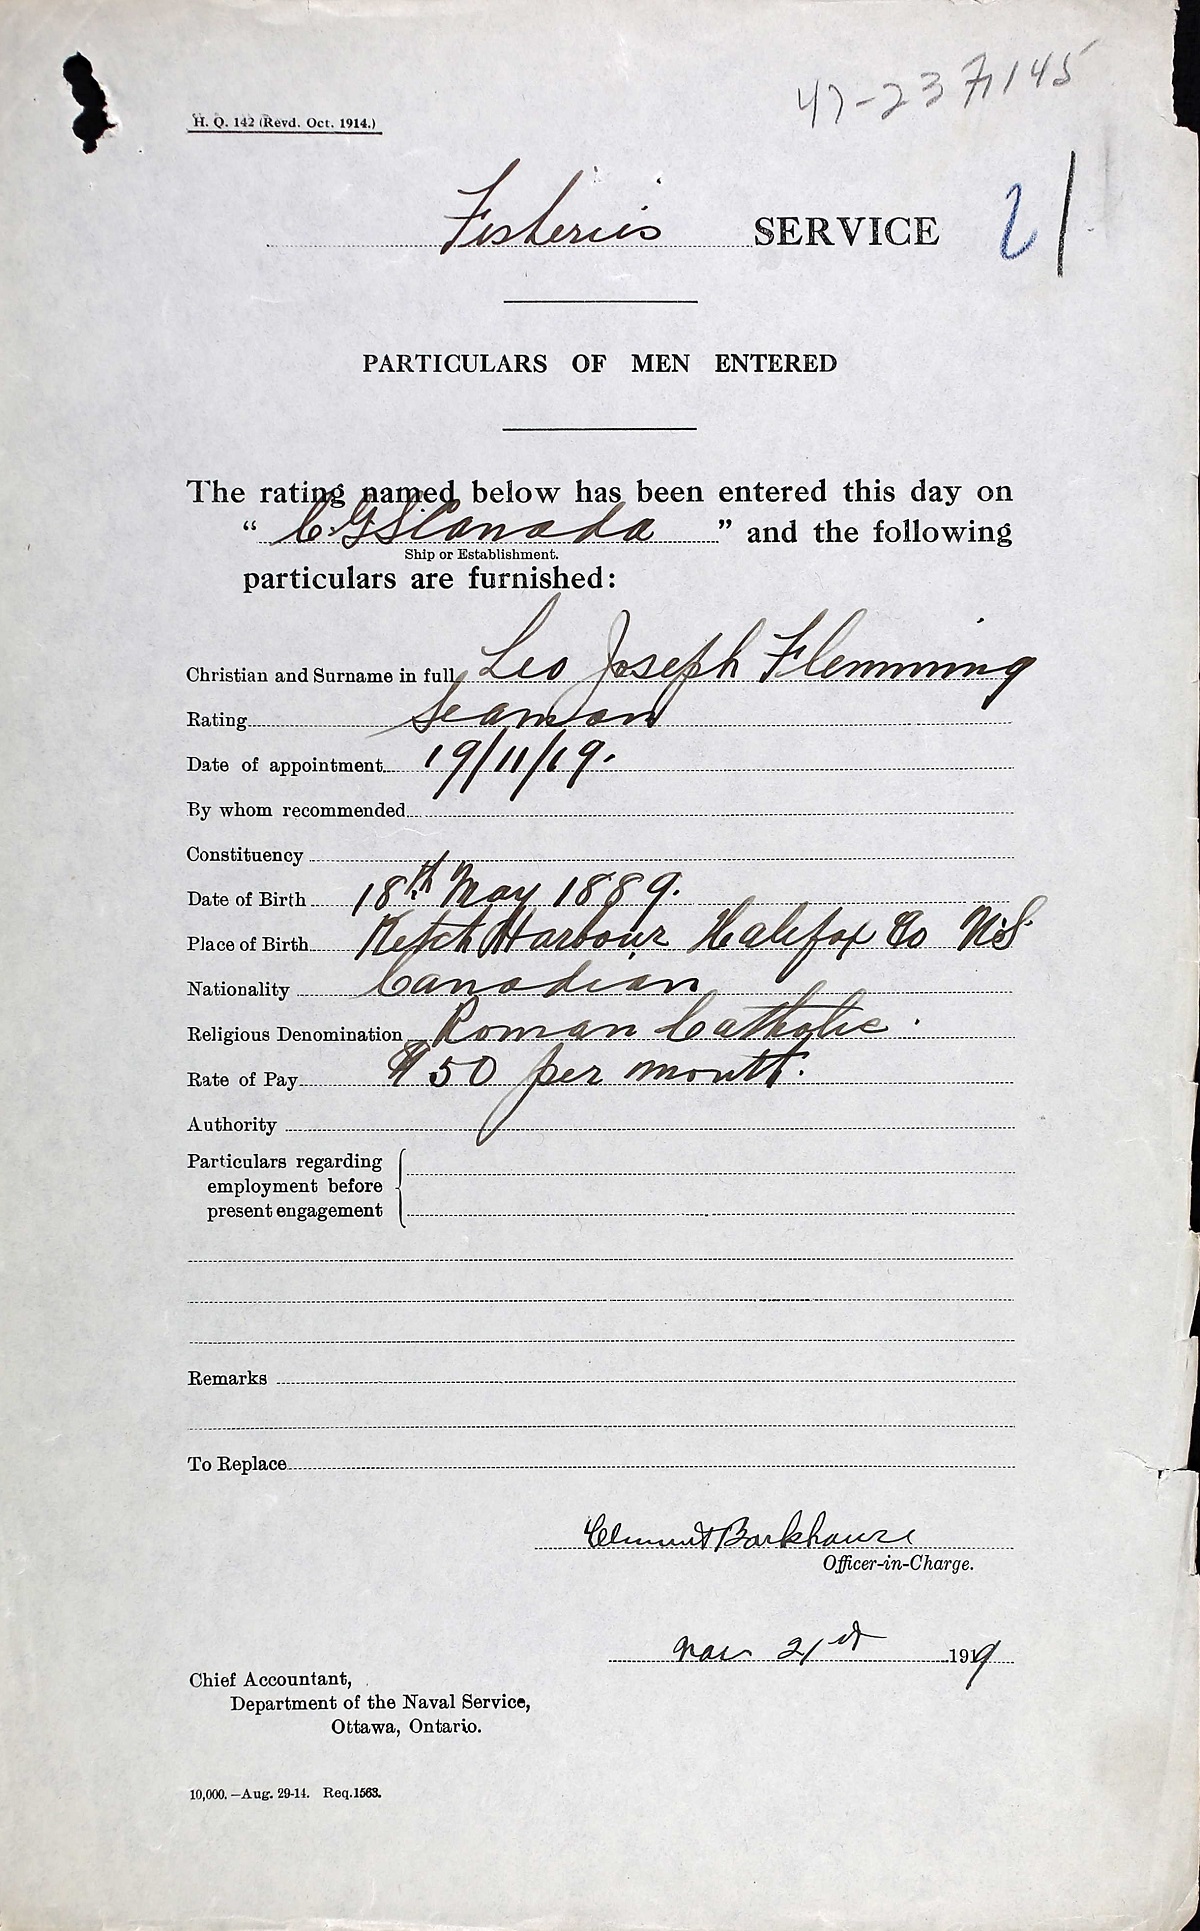 H. Q. 142 (Revd. Oct. 1914.)
Fisheries SERVICE
PARTICULARS OF MEN ENTERED
The rating named below has been entered this day on
" C.G.S Canada " and the following
Ship or Establishment.
particulars are furnished:
Christian and Surname in full Leo Joseph Flemming
Rating Seaman
Date of appointment 19/11/19.
By whom recommended
Constituency
Date of Birth 18th May 1889.
Place of Birth Ketch Harbour Halifax Co N.S.
Nationality Canadian
Religious Denomination Roman Catholic.
Rate of Pay $50 per month.
Authority
Particulars regarding
employment before
present engagement
Remarks
To Replace
Clement Barkhouse
Officer-in-Charge.
Nov 21st 1919
Chief Accountant,
Department of the Naval Service,
Ottawa, Ontario.
10,000.—Aug. 29-14. Req. 1563.